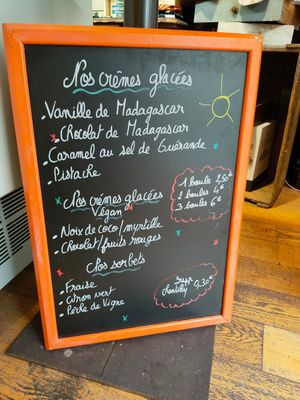 Nos crèmes glacées
Vanille de Madagascar
. Chocolat de Madagascar
. Caramel au sel de Guérande
. Pistache
Nos crèmes glacées
Végan
. Noix de coco/myrtille
. Chocolat/fruits rouges
1 boule 2,50€
2 boules 4€
3 boules 6€
Nos sorbets
. Fraise
. Citron vert
. Pêche de Vigne
Supp
chantilly 0,50€